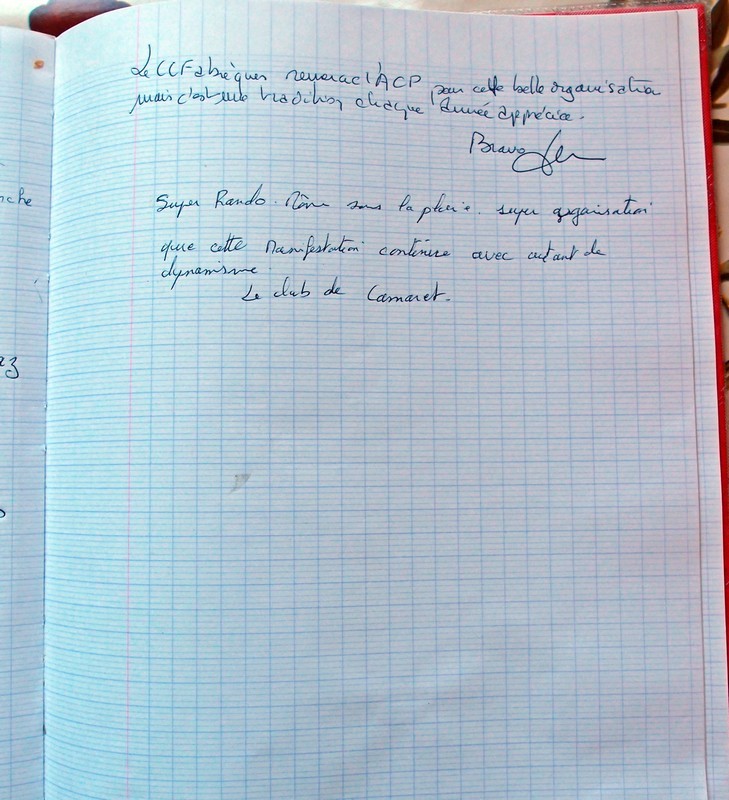 Le CCFabrègues remerc l'ACP pour cette belle organisation
mais c'est une tradition chaque année appréciée.
Bravo
Super Rando. Même sous la pluie. super organisation
que cette manifestation continue avec autant de
dynamisme.
Le club de Camaret.
che
23